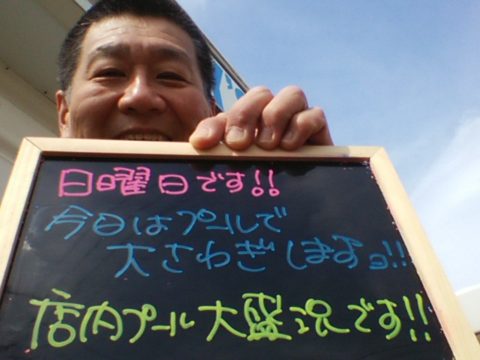 日曜日です!!
今日はプールで
大さわぎしますっ!!
店内プール大盛況です!!